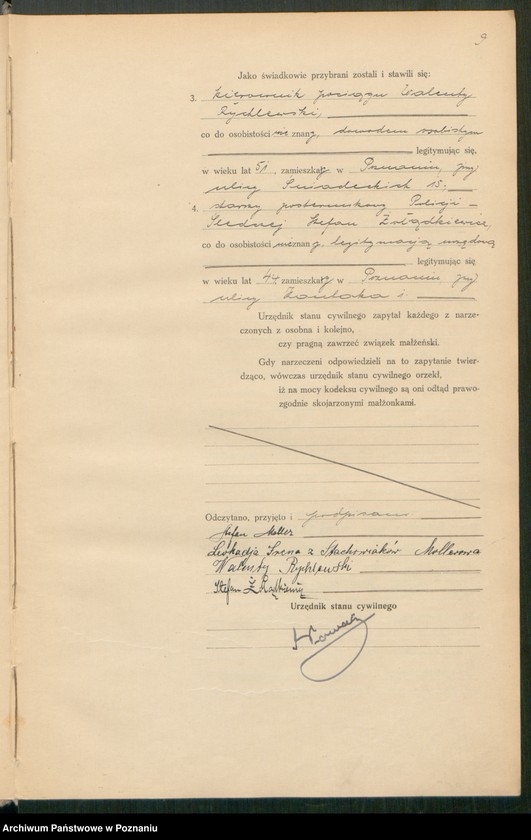 9
Jako świadkowie przybrani zostali i stawili się:
3. kierownik pociągu Walenty
Rychlewski,
co do osobistości nie znany, dowodem osobistym
legitymując się,
w wieku lat 51, zamieszkały w Poznaniu, przy
ulicy Śniadeckich 15;
4. starszy posterunkowy Policji
Śledczej Stefan Żołądkiewicz,
co do osobistości nieznany, legitymacją urzędową
legitymując się
w wieku lat 44 zamieszkały w Poznaniu przy
ulicy
Urzędnik stanu cywilnego zapytał każdego z narze-
czonych z osobna i kolejno,
czy pragną zawrzeć związek małżeński.
Gdy narzeczeni odpowiedzieli na to zapytanie twier-
dząco, wówczas urzędnik stanu cywilnego orzekł,
iż na mocy kodeksu cywilnego są oni odtąd prawo-
zgodnie skojarzonymi małżonkami.
Odczytano, przyjęto i podpisano
Stefan Moller
Leokadja Irena z Stachowiaków Mollerowa
Walenty Rychlewski
Stefan
Urzędnik stanu cywilnego
Archiwum Państwowe w Poznaniu